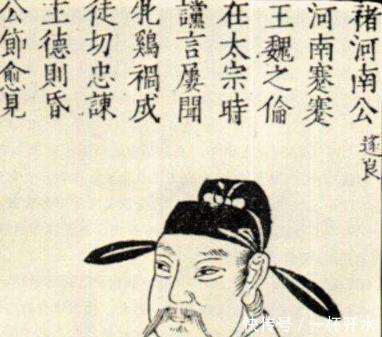 褚河南公遂良
河南蹇蹇
王魏之倫
在太宗時
讜言屢聞
牝鷄禍成
徒切忠諫
主德則昏
公節愈見
快传号 / 一杯开水